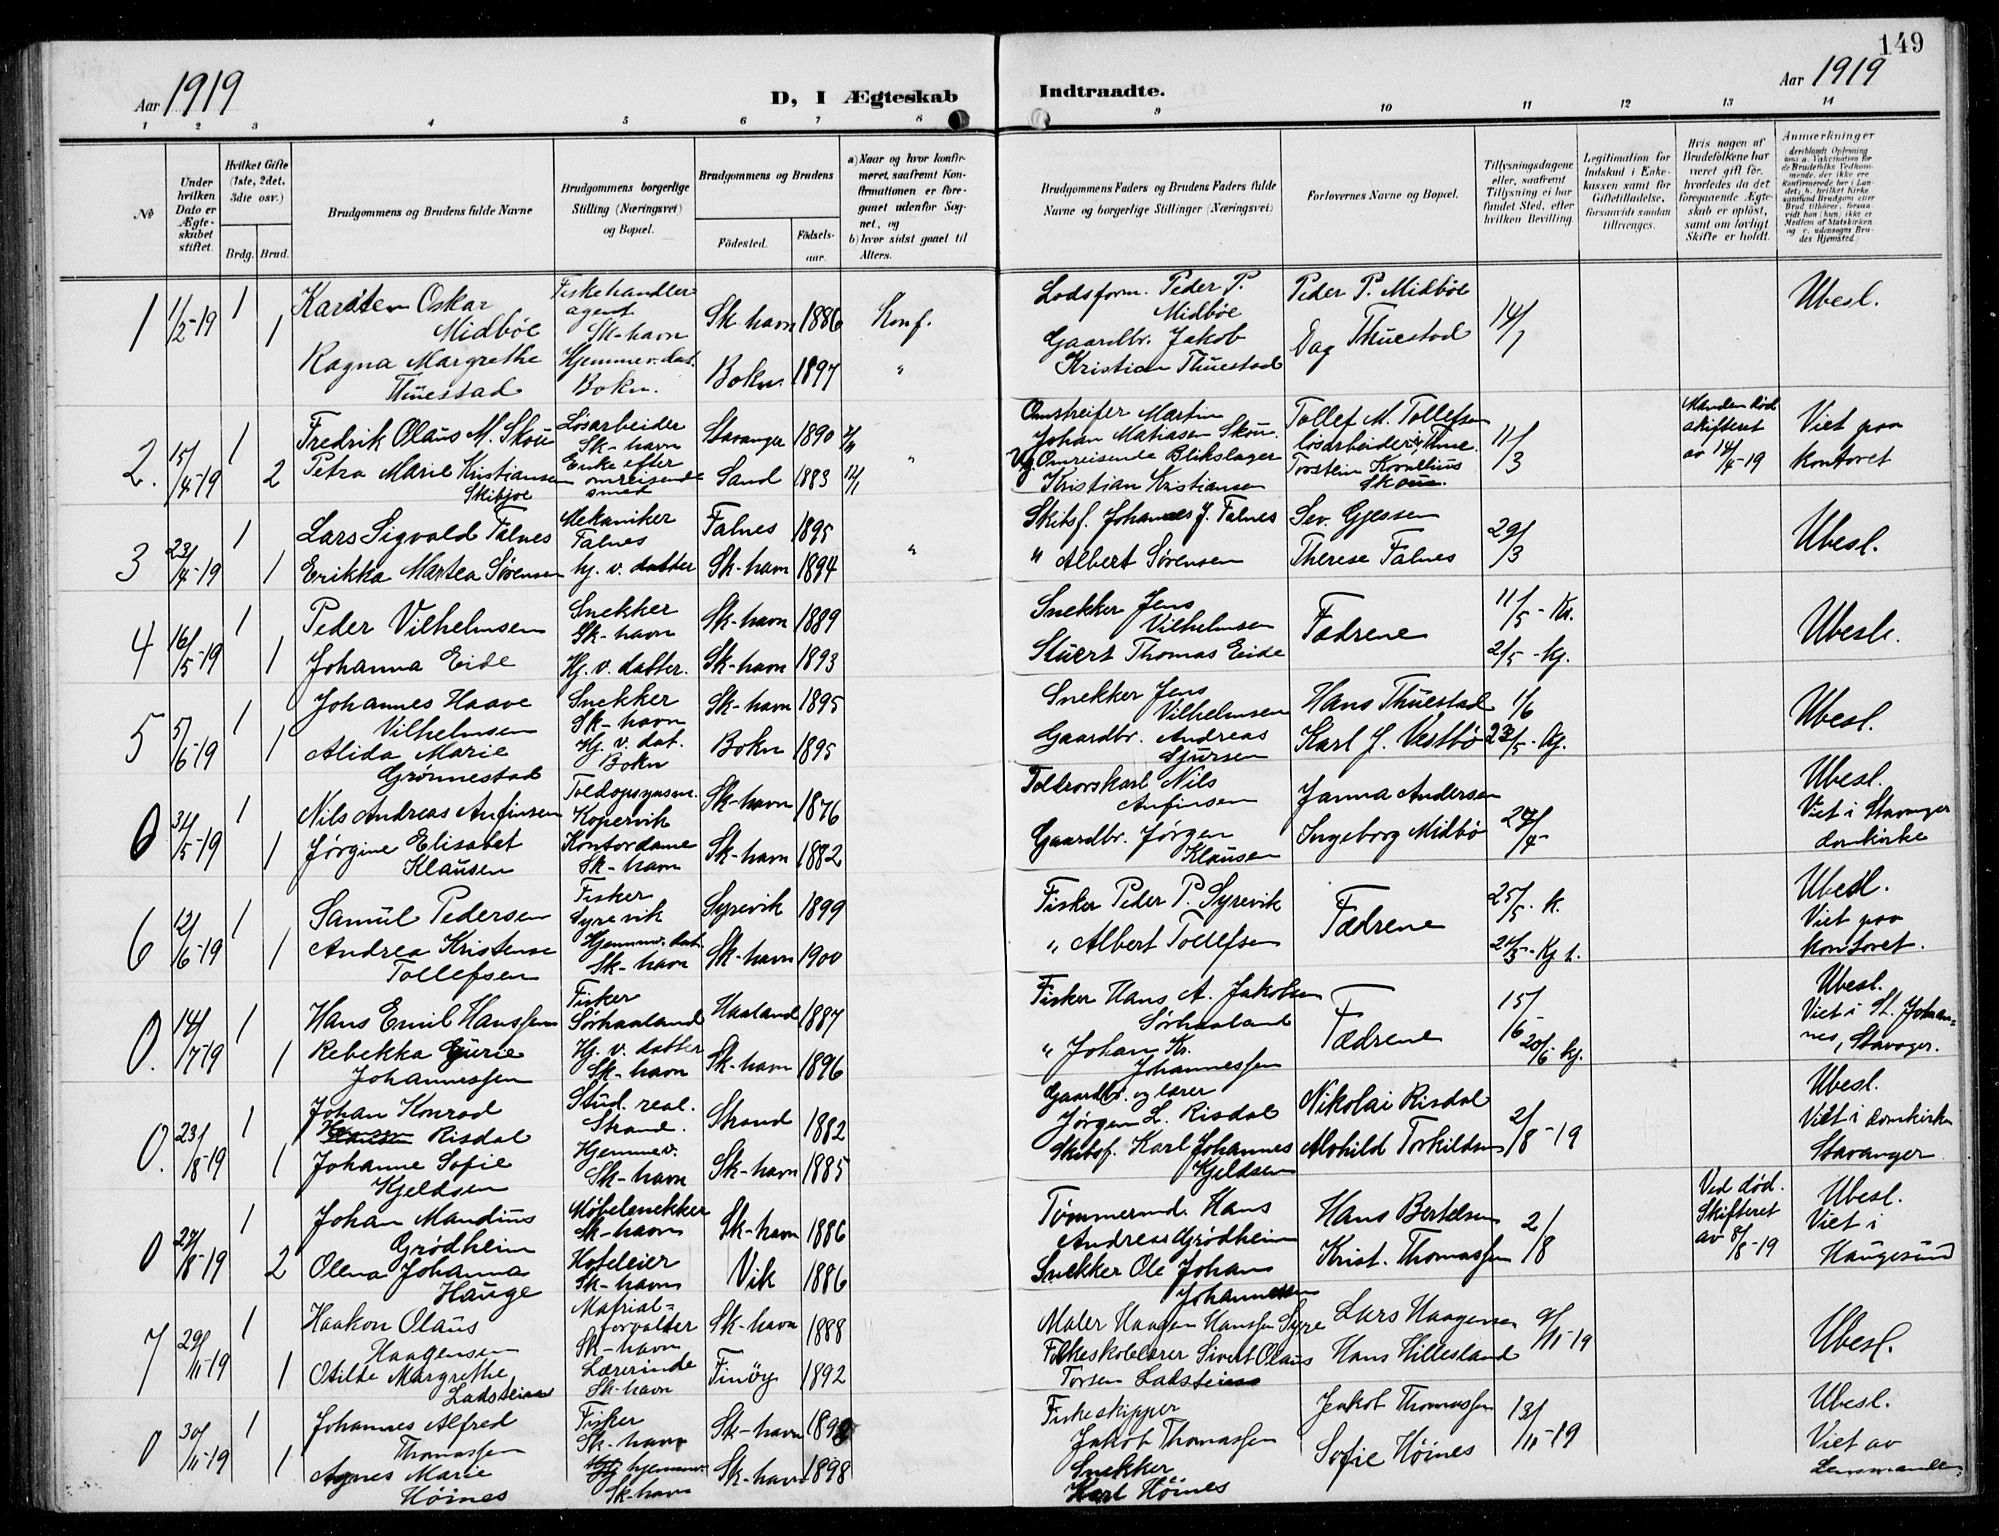 149
Aar 1919
D, I Ægteskab
Indtraadte.
Aar 1919
1 2 3 4 5 6 7 8 9 10 11 12 13 14
No
Under hvilken Dato er Ægteskabet stiftet.
Hvilket Gifte (1ste, 2det, 3die osv.)
Brdg. Brud.
Brudgommens og Brudens fulde Navne
Brudgommens borgerlige Stilling (Næringsvei) og Bopæl.
Brudgommens og Brudens
Födested.
Födselsaar.
a) Naar og hvor konfirmeret, saafremt Konfirmationen er foreganet udenfor Sognet, og
b) hvor sidst gaaet til Alters.
Brudgommens Faders og Brudens Faders fulde Navne og borgerlige Stillinger (Næringsvei)
Forlovernes Navne og Bopæl.
Tillysningsdagene eller, saafremt Tillysning ei har fundet Sted, efter hvilken Bevilling.
Legitimation for Indskud i Enkekassen samt for Giftetilladelse, forsaavidt saadan tiltrænges.
Hvis nogen af Brudefolkene har været gift för, hvorledes da det foregaaende Ægteskab er oplöst, samt om lovligt Skifte er holdt.
Anmærkninger
1 1/2-19 1 Karsten Oskar Midböe Fiskehandler agent Sk-havn Sk-havn 1886 Konf. Lodsform. Peder P. Midböe Peder P. Midböe 14/1 Ubesl.
1 Ragna Margrethe Thuestad Hjemmev. dat. Bokn. Bokn 1897 " Gaardbr. Jakob Kristian Thuestad Dag Thuestad
2. 15/4-19 1 Fredrik Olaus M. Skou Lösarbeider Sk-havn Stavanger 1890 Omstreifer Martin Johan Matiasen Skou Tollef M. Tollefsen lösarbeider 11/3 Manden död skifteret av 14/4-19 Viet paa kontoret
2 Petra Marie Kristiansen Skibjoe Enke efter omreisende smed Sand 1883 " Omreisende Blikslager Kristian Kristiansen Torstein Kornelius Skou.
3 23/4-19 1 Lars Sigvald Falnes Mekaniker Falnes Falnes 1895 " Skibsf. Johannes J. Falnes Sev. Gjessen 29/3 Ubesl.
1 Erikka Martea Sørensen hj. v. datter Sk-havn 1894 " Albert Sørensen Therese Falnes
4 16/5-19 1 Peder Vilhelmsen Snekker Sk-havn Sk-havn 1889 Snekker Jens Vilhelmsen Fædrene 11/5 - Kr. Ubesl.
1 Johanna Eide Hj. v. datter. Sk-havn 1893 Stuert Thomas Eide 2/5 - Kj.
5 5/6-19 1 Johannes Haave Vilhelmsen Snekker Sk-havn Sk-havn 1895 Snekker Jens Vilhelmsen Hans Thuestad 1/6 Ubesl.
1 Alida Marie Grønnestad Hj. v. dat. Bokn Bokn 1895 Gaardbr. Andreas Sjursen Karl J. Vestbö 23/5 - Kj.
0 31/5-19 1 Nils Andreas Anfinsen Toldopsynsm. Kopervik Sk-havn 1876 Toldrorskarl Nils Anfinsen Janna Andersen 27/4 Ubesl. Viet i Stavanger domkirke
1 Jørgine Elisabet Klausen Kontordame Sk-havn Sk-havn 1882 Gaardbr. Jørgen Klausen Ingeborg Midbö
6 12/6-19 1 Samuel Pedersen Fisker Syrevik Syrevik 1899 Fisker Peder P. Syrevik Fædrene 25/5 - K. Ubesl. Viet paa kontoret.
1 Andrea Kristense Tollefsen Hjemmev. dat. Sk-havn Sk-havn 1900 " Albert Tollefsen
0. 14/7-19 1 Hans Emil Hanssen Fisker Sørhaaland Haaland 1887 Fisker Hans A. Jakobsen Sørhaaland Fædrene 15/6 Ubesl. Viet i St. Johannes, Stavager.
1 Rebekka Gurie Johannessen Hj. v. datter Sk-havn Sk-havn 1896 " Johan Kr. Johannessen 20/6 - Kj.
0. 23/8-19 1 Johan Konrad Risdal Stud. real. Strand. Strand 1882 Gaardbr. og lærer Jørgen L. Risdal Nikolai Risdal 2/8-19 Ubesl. Viet i domkirken Stavanger
1 Johanne Sofie Kjeldsen Hjemmev. Sk-havn Sk-havn 1885 Skibsf. Karl Johannes Kjeldsen Alvhild Torkildsen
0 27/8-19 1 Johan Mandius Grødheim Möbelsnekker Sk-havn Sk-havn 1886 Tømmermd. Hans Andreas Grødheim Hans Bertelsen 2/8 Ved död. Skifteret av 8/8-19 Ubesl. Viet i Haugesund
2 Olena Johanna Hauge Hoteleier Sk-havn Vik 1886 Snekker Ole Johan Johannessen Krist. Thomassen
7 29/11-19 1 Haakon Olaus Haagensen Matrialforvalter Sk-havn Sk-havn 1888 Maler Haagen Hanssen Syre Lars Haagensen 9/11-19 Ubesl.
1 Otilde Margrethe Ladstein Lærerinde Sk-havn Finöy 1892 Folkeskolelærer Sivert Olaus Torsen Ladstein Hans Hillesland
0 30/11-19 1 Johannes Alfred Thomassen Fisker Sk-havn Sk-havn Fiskeskipper Jakob Thomassen Jakob Thomassen 13/11-19 Ubesl. Viet av Lensmanden
1 Agnes Marie Höines hjemmev. Sk-havn Sk-havn 1898 Snekker Karl Höines Sofie Höines